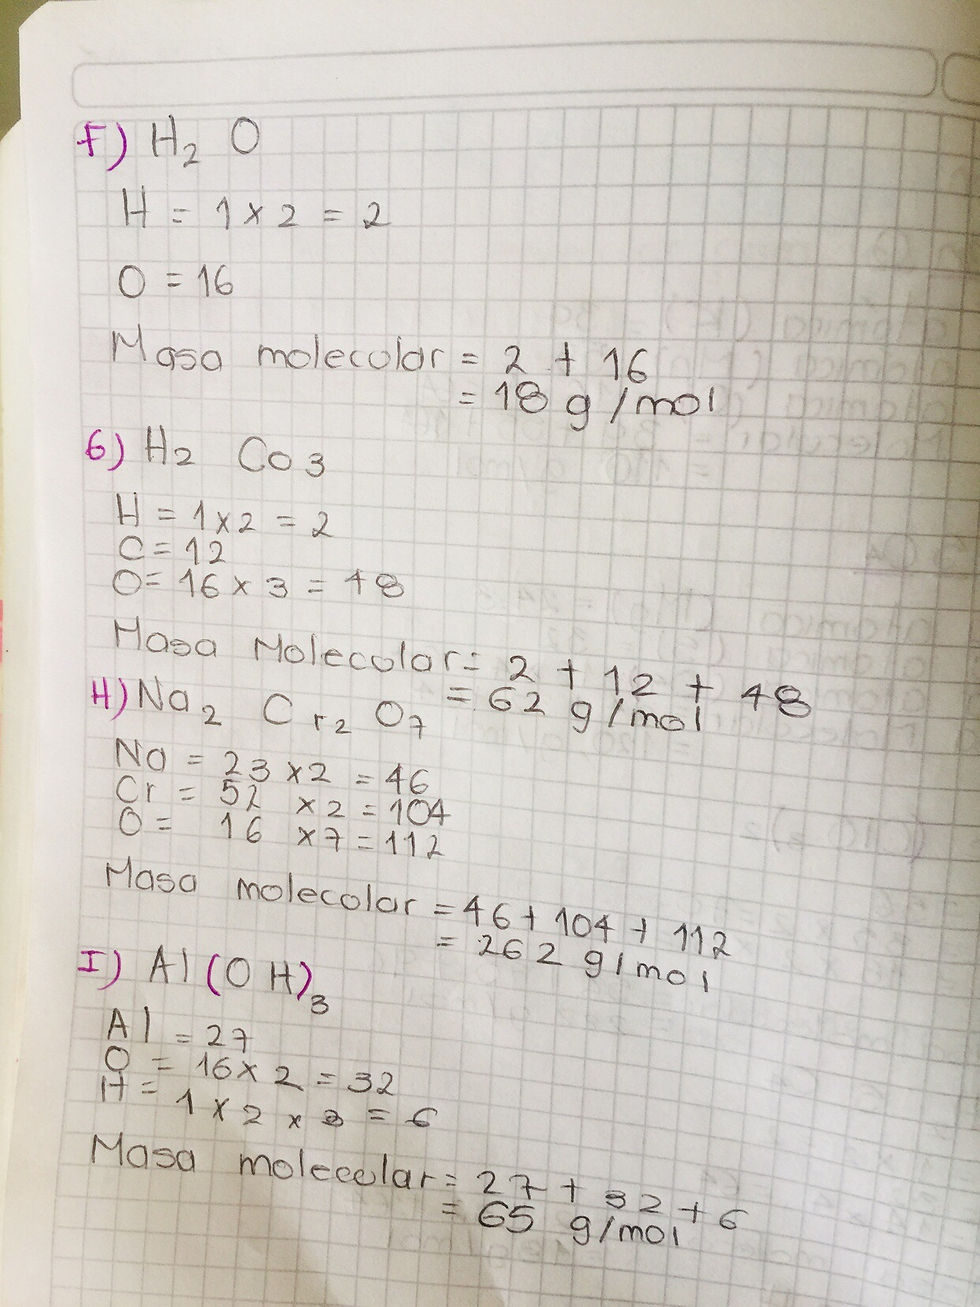 F) H2 O
H = 1 x 2 = 2
O = 16
Masa molecolar = 2 + 16
= 18 g/mol
G) H2 Co3
H = 1x2 = 2
C = 12
O = 16 x 3 = 48
Masa Molecolar = 2 + 12 + 48
= 62 g/mol
H) Na2 Cr2 O7
Na = 23 x2 = 46
Cr = 52 x2 = 104
O = 16 x7 = 112
Masa molecolar = 46 + 104 + 112
= 262 g/mol
I) Al(OH)3
Al = 27
O = 16x 2 = 32
H = 1 x 2 x 3 = 6
Masa molecolar = 27 + 32 + 6
= 65 g/mol